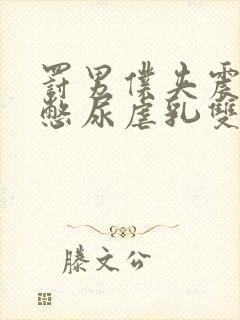 罰男僕失震
憋尿虐乳雙
滕文公